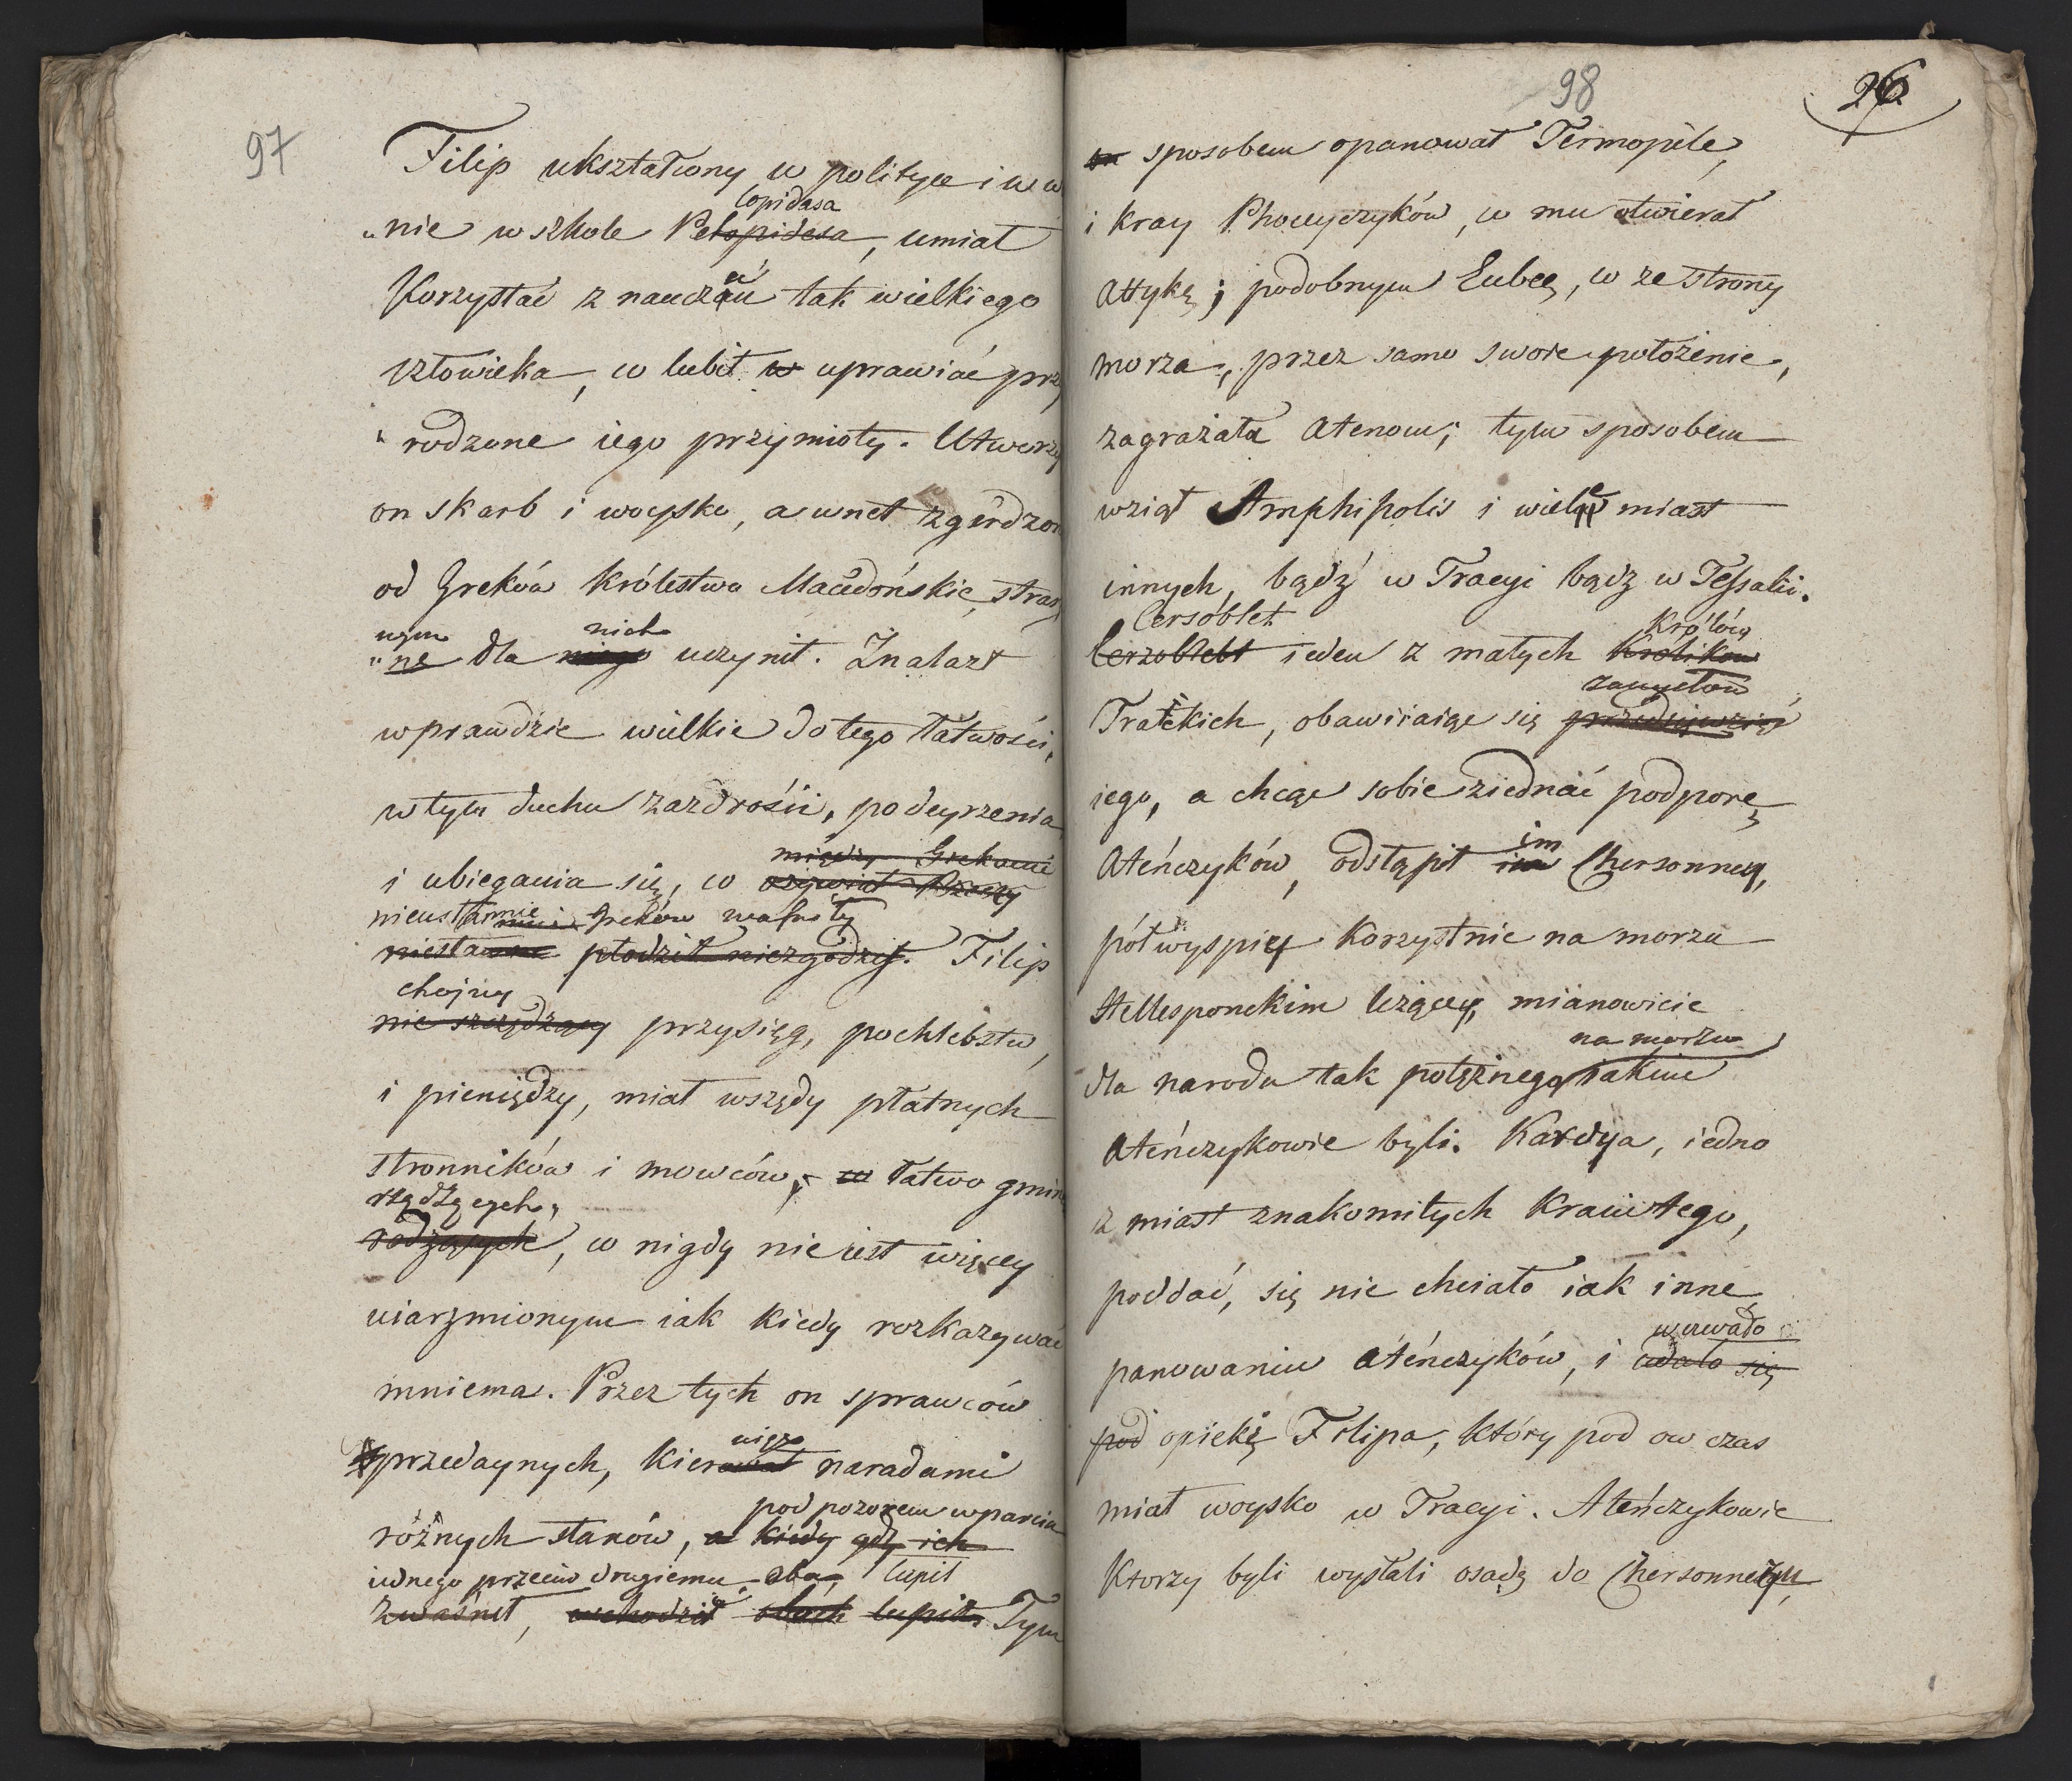 97
Filip ukształcony w polityce i w w
„nie w szkole Pelopidesa, umiał
lopidasa
Korzystać z nauczań tak wielkiego
człowieka, co lubił w uprawiać przy
rodzone iego przymioty. Utworzy
on skarb i woysko, a wnet zgardzon
od Greków królestwo Macedońskie, stras
nich
„ne dla niego uczynił. Znalazł
wprawdzie wielkie do tego łatwości,
w tym duchu zazdrości, podeyrzenia
między Grekami
i ubiegania się, co ożywiał
nieustannie Greków waśniły
niestanne płodził niezgodził. Filip
chojny
nie szczędzący przysiąg, pochlebstw,
i pieniędzy, miał wszędy płatnych
stronników i mowców, co łatwo gmin
rządzących,
rodzących, co nigdy nie iest więcey
uiarzmionym iak kiedy rozkazywać
mniema. Przez tych on sprawców
sprzedaynych, kierował naradami
różnych stanów, a kiedy gdy ich
pod pozorem wparcia
iednego przeciw drugiemu, oba, łupił
zwaśnił, wchodził obach łupił. Tym
98
26
on sposobem opanował Termopile,
i kray Phoceyczyków, co mu otwierał
Attykę; podobnym Eubeę, co ze strony
morza, przez samo swoie położenie,
zagrażała Atenom; tym sposobem
wziął Amphipolis i wiele miast
innych, bądź w Tracyi bądz w Tessalii.
Cersoblet
Cerzoblebt ieden z małych Królików
Królów
zamysłów
Trackich, obawiaiąc się przedsięwzięć
iego, a chcąc sobie ziednać podporę
im
Ateńczyków, odstąpił im Chersonnez,
półwyspię korzystnie na morzu
Hellesponckim leżący, mianowicie
na morzu
dla narodu tak potężnego iakim
Ateńczykowie byli. Kardya, iedno
z miast znakomitych Kraiu tego,
poddać, się nie chciało iak inne
wezwało
panowaniu Ateńczyków, i udało się
pod opiekę Filipa, który pod ow czas
miał woysko w Tracyi. Ateńczykowie
Ktorzy byli wysłali osadę do Chersonnezu,